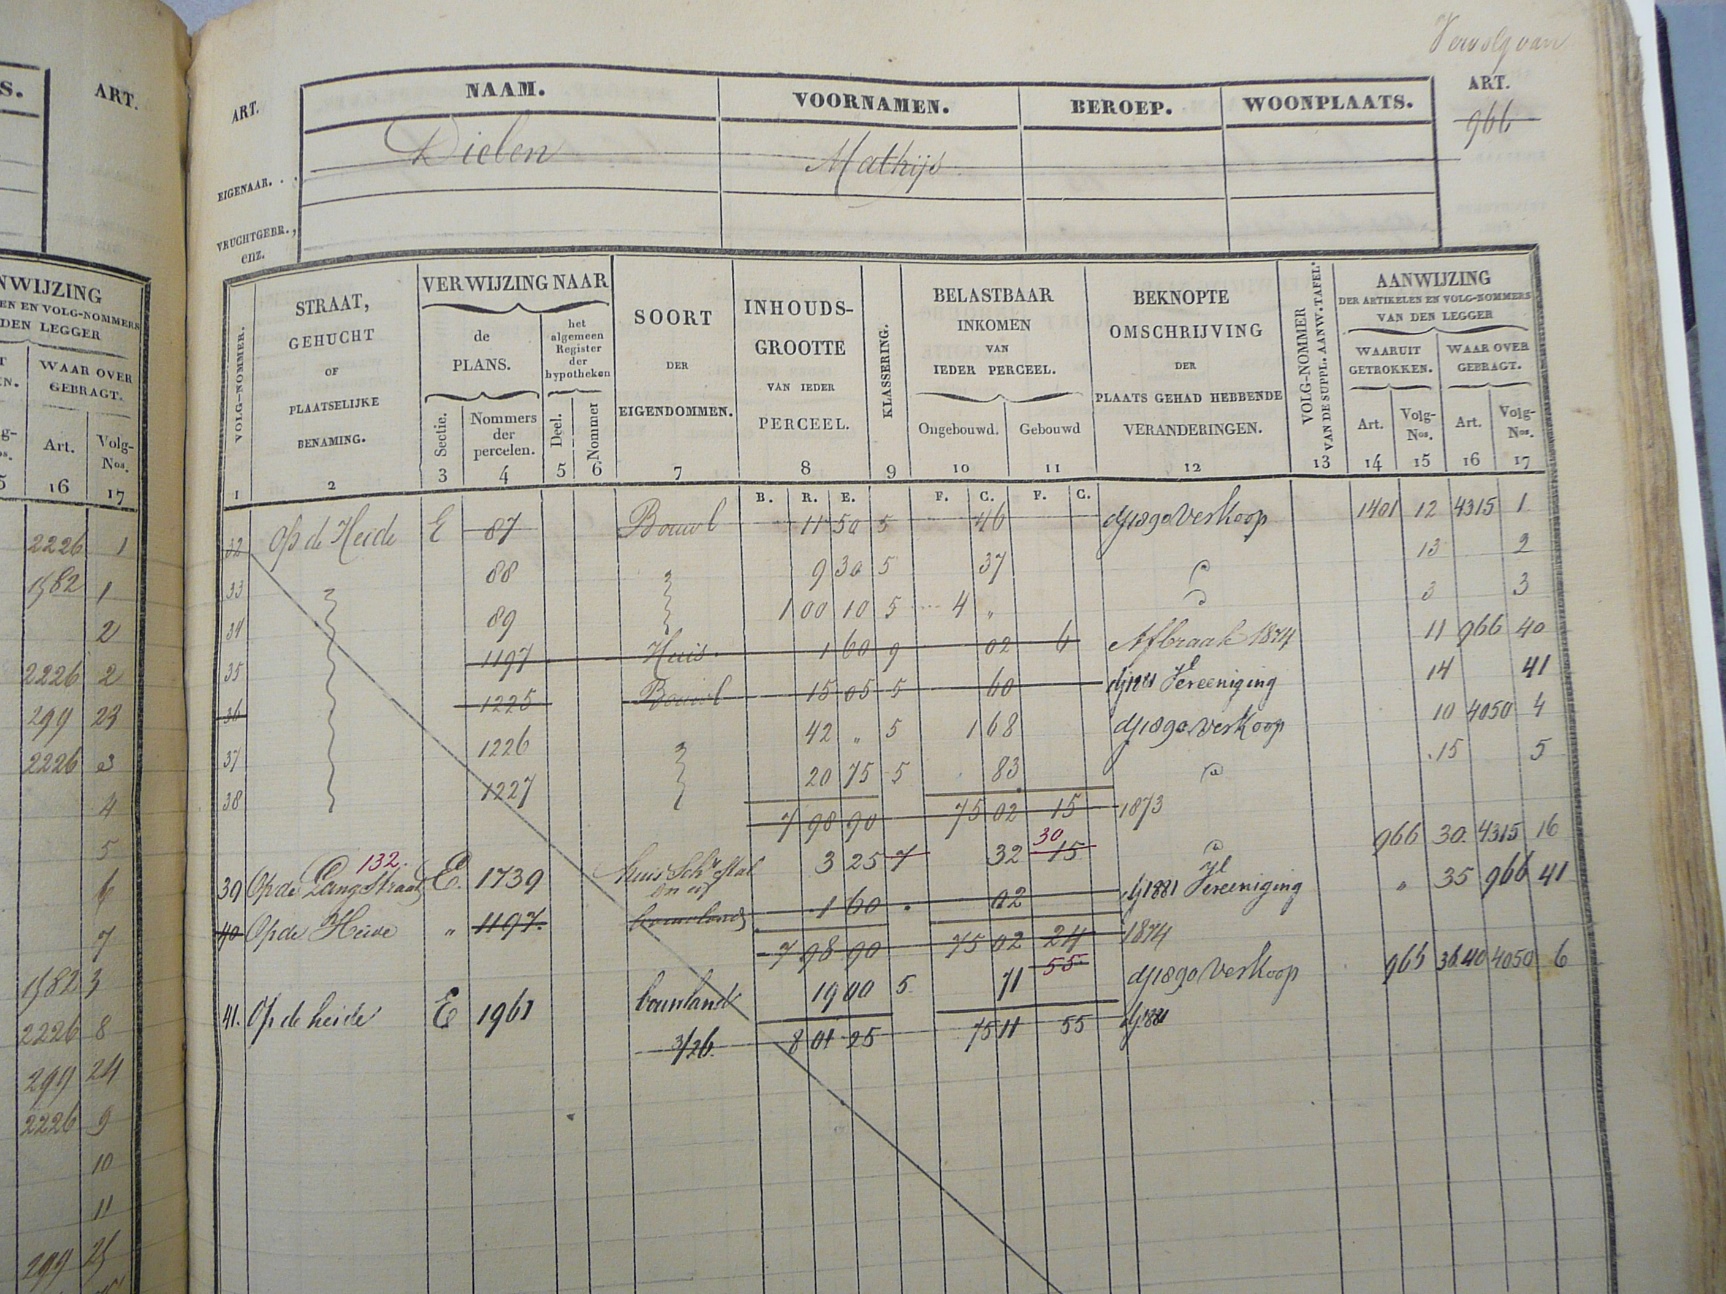 Vervolg van
S.
ART.
ART.
NAAM.
VOORNAMEN.
BEROEP.
WOONPLAATS.
ART.
966
EIGENAAR. . .
Dielen
Mathijs
VRUCHTGEBR.,
enz.
VOLG-NOMMER.
STRAAT,
GEHUCHT
OF
PLAATSELIJKE
BENAMING.
VERWIJZING NAAR
de
PLANS.
het
algemeen
Register
der
hypotheken
Sectie.
Nommers
der
percelen.
Deel.
Nommer
SOORT
DER
EIGENDOMMEN.
INHOUDS-
GROOTTE
VAN IEDER
PERCEEL.
KLASSERING.
BELASTBAAR
INKOMEN
VAN
IEDER PERCEEL.
Ongebouwd.
Gebouwd
BEKNOPTE
OMSCHRIJVING
DER
PLAATS GEHAD HEBBENDE
VERANDERINGEN.
VOLG-NOMMER
VAN DE SUPPL. AANW. TAFEL.
AANWIJZING
DER ARTIKELEN EN VOLG-NOMMERS
VAN DEN LEGGER
WAARUIT
GETROKKEN.
WAAR OVER
GEBRAGT.
Art.
Volg-
Nos.
Art.
Volg-
Nos.
1 2 3 4 5 6 7 8 9 10 11 12 13 14 15 16 17
B. R. E. F. C. F. C.
32 Op de Heide E 87 Bouwl 11 50 5 46 dj 1890 Verkoop 1401 12 4315 1
33 88 9 30 5 37 13 2
34 89 1 00 10 5 4 „ 3 3
35 1197 Huis 1 60 9 02 6 Afbraak 1874 11 966 40
36 1225 Bouwl 15 05 5 60 dj 1881 Vereeniging 14 41
37 1226 42 „ 5 1 68 dj 1890 Verkoop 10 4050 4
38 1227 20 75 5 83 15 5
7 98 90 75 02 15 1873
132. 30
39 Op de Langstraat E. 1739 huis Schr Stal en erf 3 25 7 32 15 966 30. 4315 16
40 Op de Heive „ 1197. bouwland 1 60 02 dj 1881 Vereeniging „ 35 966 41
7 98 90 75 02 24 1874
55
41. Op de heide E 1961 bouwland 19 00 5 71 dj 1890 Verkoop 965 36.40 4050 6
3/26. 8 01 25 75 11 55 dj 1881
NWIJZING
EN EN VOLG-NOMMERS
DEN LEGGER
WAAR OVER
GEBRAGT.
Art.
Volg-
Nos.
16 17
2226 1
1582 1
2
2226 2
299 23
2226 3
4
5
6
7
1582 3
2226 8
299 24
2226 9
10
11
299 25